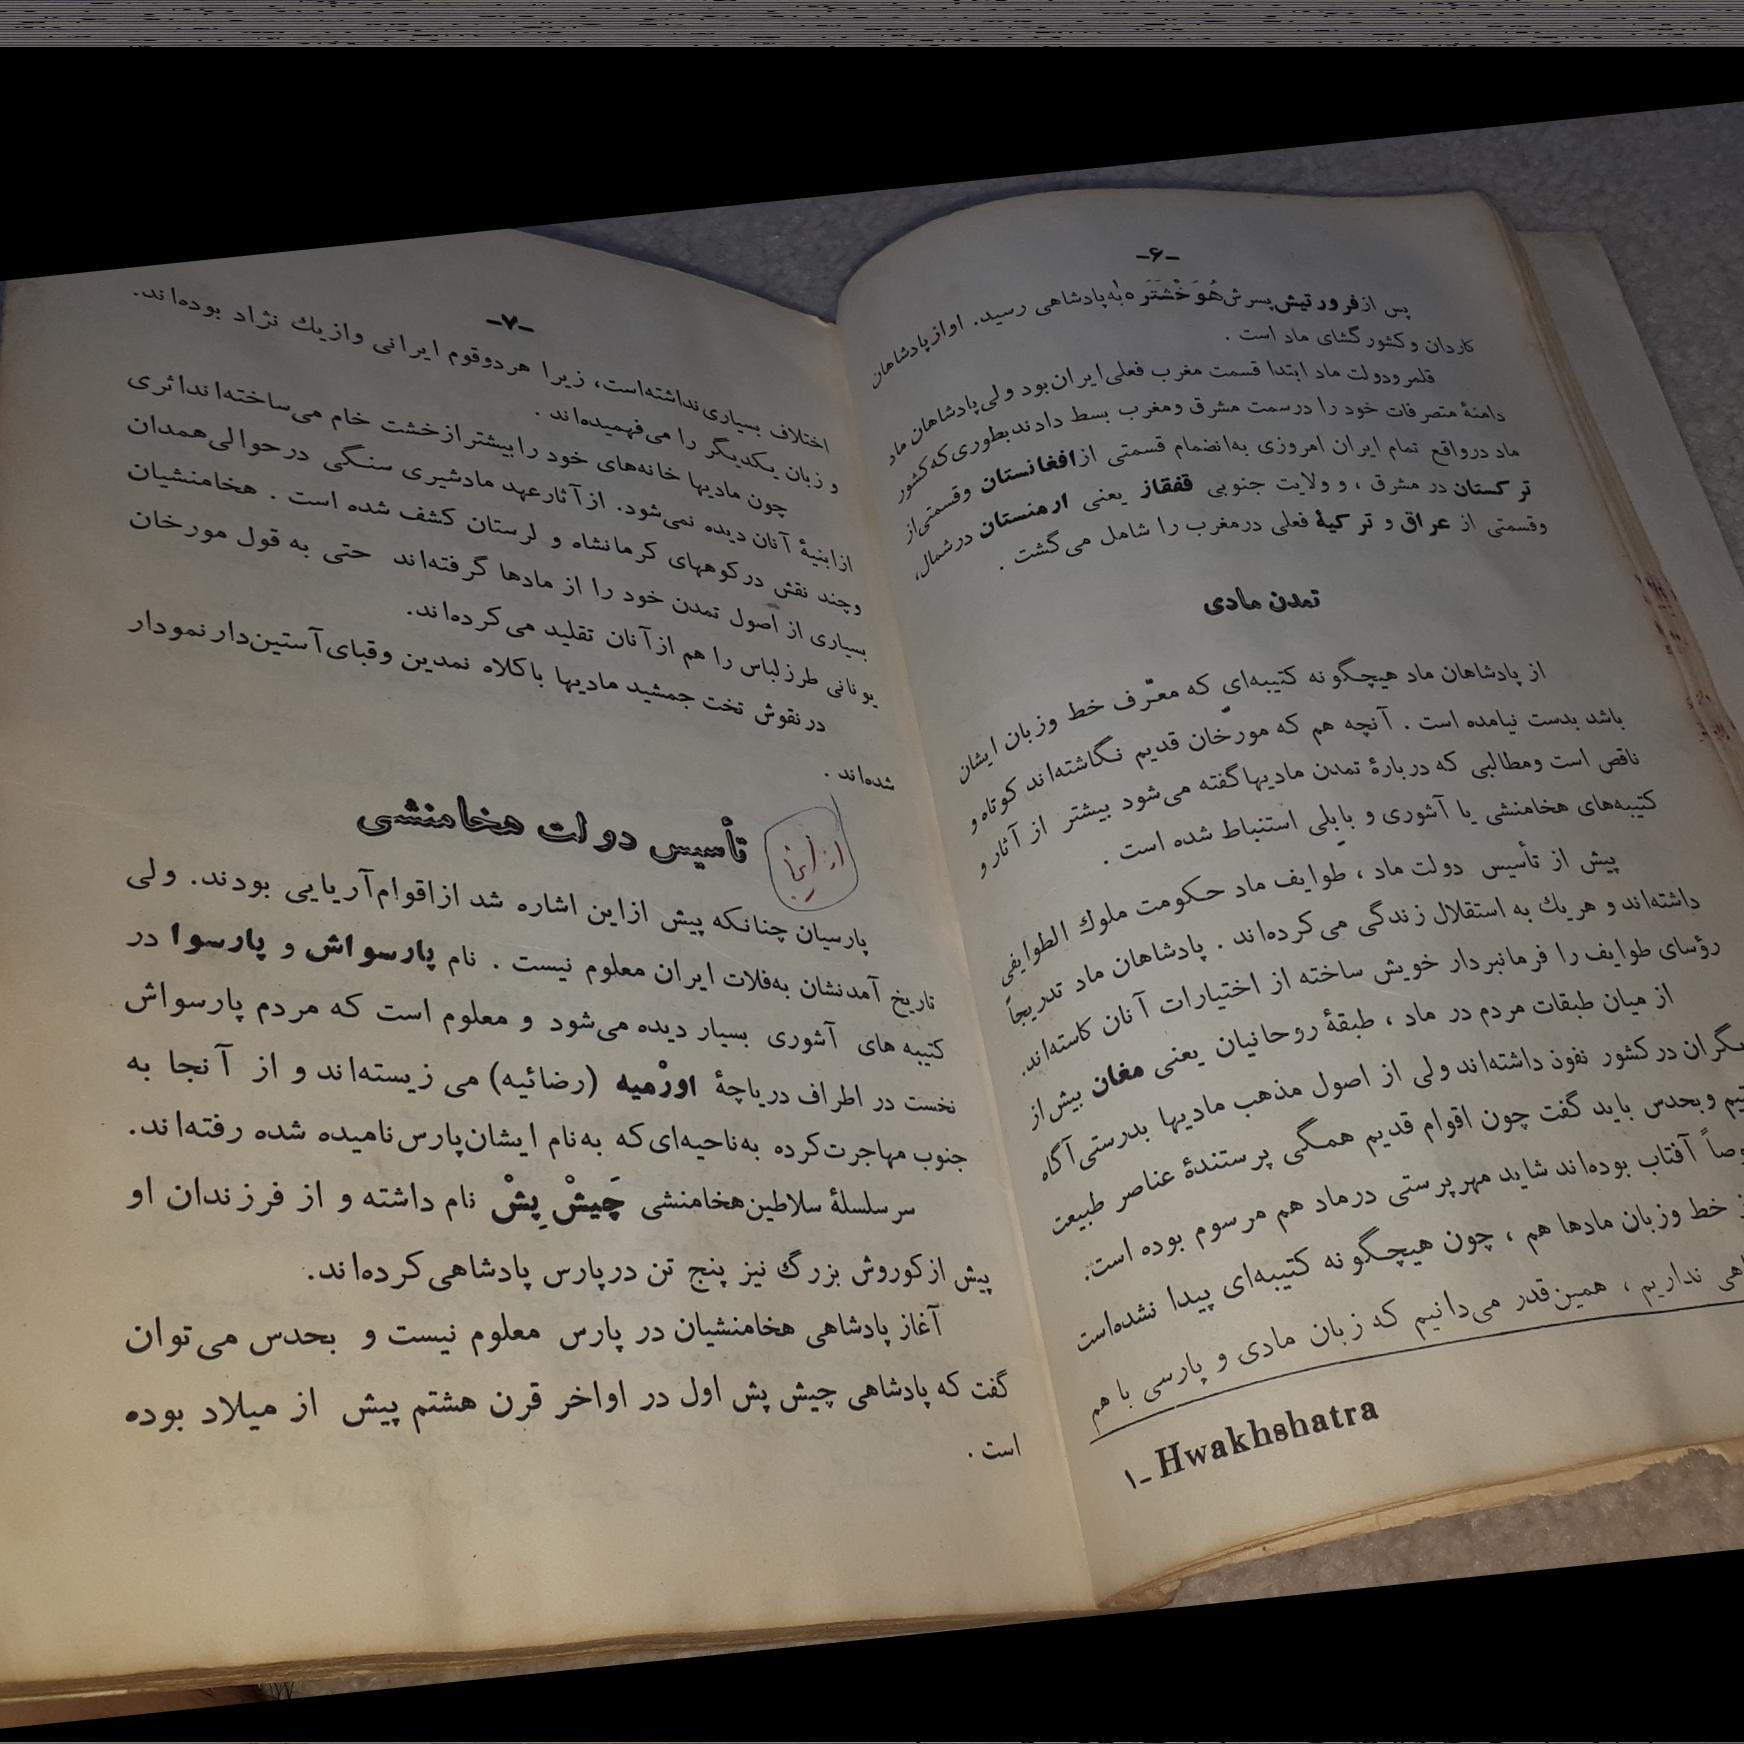 -۶-
پس از فرورتیش پسرش هُوَخْشَتَرَه ۱ به پادشاهی رسید. او از پادشاهان
کاردان و کشور گشای ماد است .
قلمرو دولت ماد ابتدا قسمت مغرب فعلی ایران بود ولی پادشاهان ماد
دامنهٔ متصرفات خود را در سمت مشرق و مغرب بسط دادند بطوری که کشور
ماد در واقع تمام ایران امروزی به انضمام قسمتی از افغانستان و قسمتی از
ترکستان در مشرق ، و ولایت جنوبی قفقاز یعنی ارمنستان در شمال،
و قسمتی از عراق و ترکیهٔ فعلی در مغرب را شامل می گشت .
تمدن مادی
از پادشاهان ماد هیچگونه کتیبه‌ای که معرّف خط و زبان ایشان
باشد بدست نیامده است . آنچه هم که مورّخان قدیم نگاشته‌اند کوتاه و
ناقص است و مطالبی که دربارهٔ تمدن مادیها گفته می‌شود بیشتر از آثار و
کتیبه‌های هخامنشی یا آشوری و بابلی استنباط شده است .
پیش از تأسیس دولت ماد ، طوایف ماد حکومت ملوك الطوایفی
داشته‌اند و هریك به استقلال زندگی می‌کرده‌اند . پادشاهان ماد تدریجاً
رؤسای طوایف را فرمانبردار خویش ساخته از اختیارات آنان کاسته‌اند.
از میان طبقات مردم در ماد ، طبقهٔ روحانیان یعنی مغان بیش از
یگران در کشور نفوذ داشته‌اند ولی از اصول مذهب مادیها بدرستی آگاه
تیم و بحدس باید گفت چون اقوام قدیم همگی پرستندهٔ عناصر طبیعت
وصاً آفتاب بوده‌اند شاید مهرپرستی در ماد هم مرسوم بوده است.
ز خط و زبان مادها هم ، چون هیچگونه کتیبه‌ای پیدا نشده‌است
اهی نداریم ، همین‌قدر می‌دانیم که زبان مادی و پارسی با هم
۱- Hwakhshatra
-۷-
اختلاف بسیاری نداشته‌است، زیرا هر دو قوم ایرانی و از یك نژاد بوده‌اند.
و زبان یکدیگر را می‌فهمیده‌اند .
چون مادیها خانه‌های خود را بیشتر از خشت خام می‌ساخته‌اند اثری
از ابنیهٔ آنان دیده نمی‌شود. از آثار عهد ماد شیری سنگی در حوالی همدان
و چند نقش در کوههای کرمانشاه و لرستان کشف شده است . هخامنشیان
بسیاری از اصول تمدن خود را از مادها گرفته‌اند حتی به قول مورخان
یونانی طرز لباس را هم از آنان تقلید می‌کرده‌اند.
در نقوش تخت جمشید مادیها با کلاه نمدین و قبای آستین‌دار نمودار
شده‌اند .
از اینجا
تأسیس دولت هخامنشی
پارسیان چنانکه پیش از این اشاره شد از اقوام آریایی بودند. ولی
تاریخ آمدنشان به‌فلات ایران معلوم نیست . نام پارسواش و پارسوا در
کتیبه های آشوری بسیار دیده می‌شود و معلوم است که مردم پارسواش
نخست در اطراف دریاچهٔ اورْمیه (رضائیه) می زیسته‌اند و از آنجا به
جنوب مهاجرت کرده به‌ناحیه‌ای که به‌نام ایشان پارس نامیده شده رفته‌اند.
سر سلسلهٔ سلاطین هخامنشی چَیشْ پِشْ نام داشته و از فرزندان او
پیش از کوروش بزرگ نیز پنج تن در پارس پادشاهی کرده‌اند.
آغاز پادشاهی هخامنشیان در پارس معلوم نیست و بحدس می‌توان
گفت که پادشاهی چیش پش اول در اواخر قرن هشتم پیش از میلاد بوده
است .